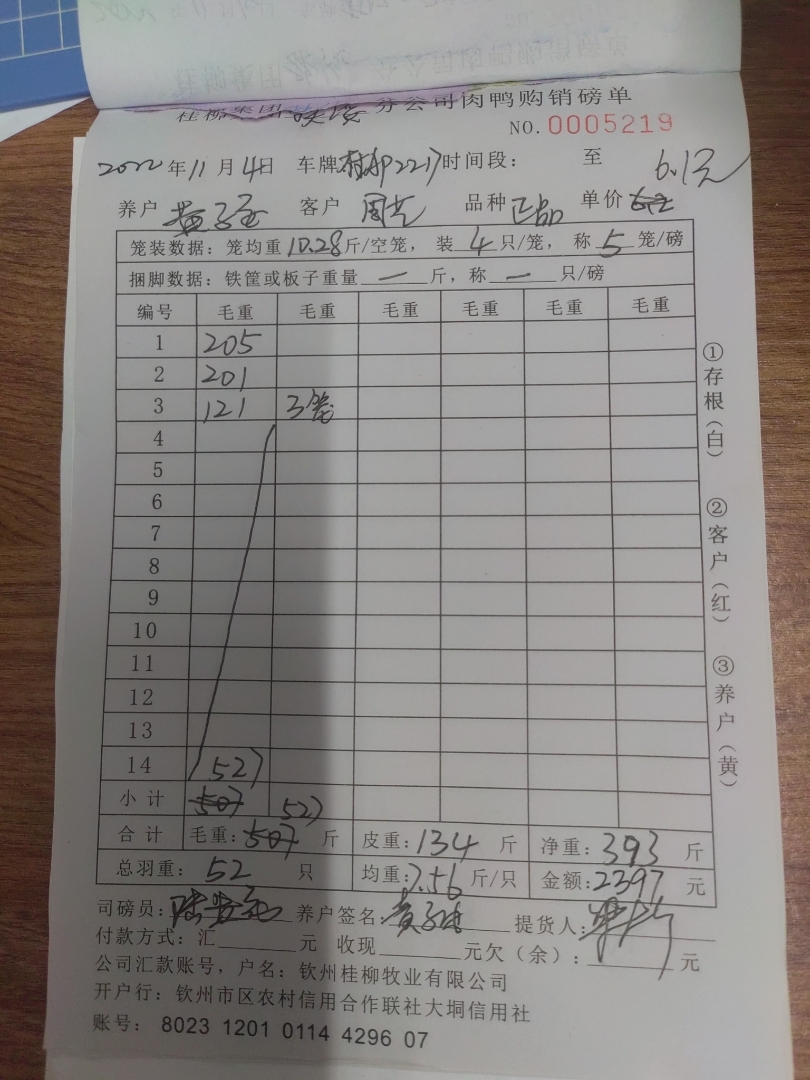 桂柳集团 分公司肉鸭购销磅单
NO. 0005219
2022年11月4日 车牌桂柳2217时间段: 至 6.1元
养户 客户 周艺 品种 正品 单价
笼装数据: 笼均重10.28斤/空笼, 装4只/笼, 称5笼/磅
捆脚数据: 铁筐或板子重量—斤, 称—只/磅
编号 毛重 毛重 毛重 毛重 毛重 毛重
1 205
2 201
3 121 3笼
4
5
6
7
8
9
10
11
12
13
14 527
小计 507 527
合计 毛重: 507 斤 皮重: 134 斤 净重: 393 斤
总羽重: 52 只 均重: 7.56 斤/只 金额: 2397 元
司磅员: 养户签名: 提货人:
付款方式: 汇 元 收现 元欠(余): 元
公司汇款账号, 户名: 钦州桂柳牧业有限公司
开户行: 钦州市区农村信用合作联社大垌信用社
账号: 8023 1201 0114 4296 07
①存根(白)
②客户(红)
③养户(黄)